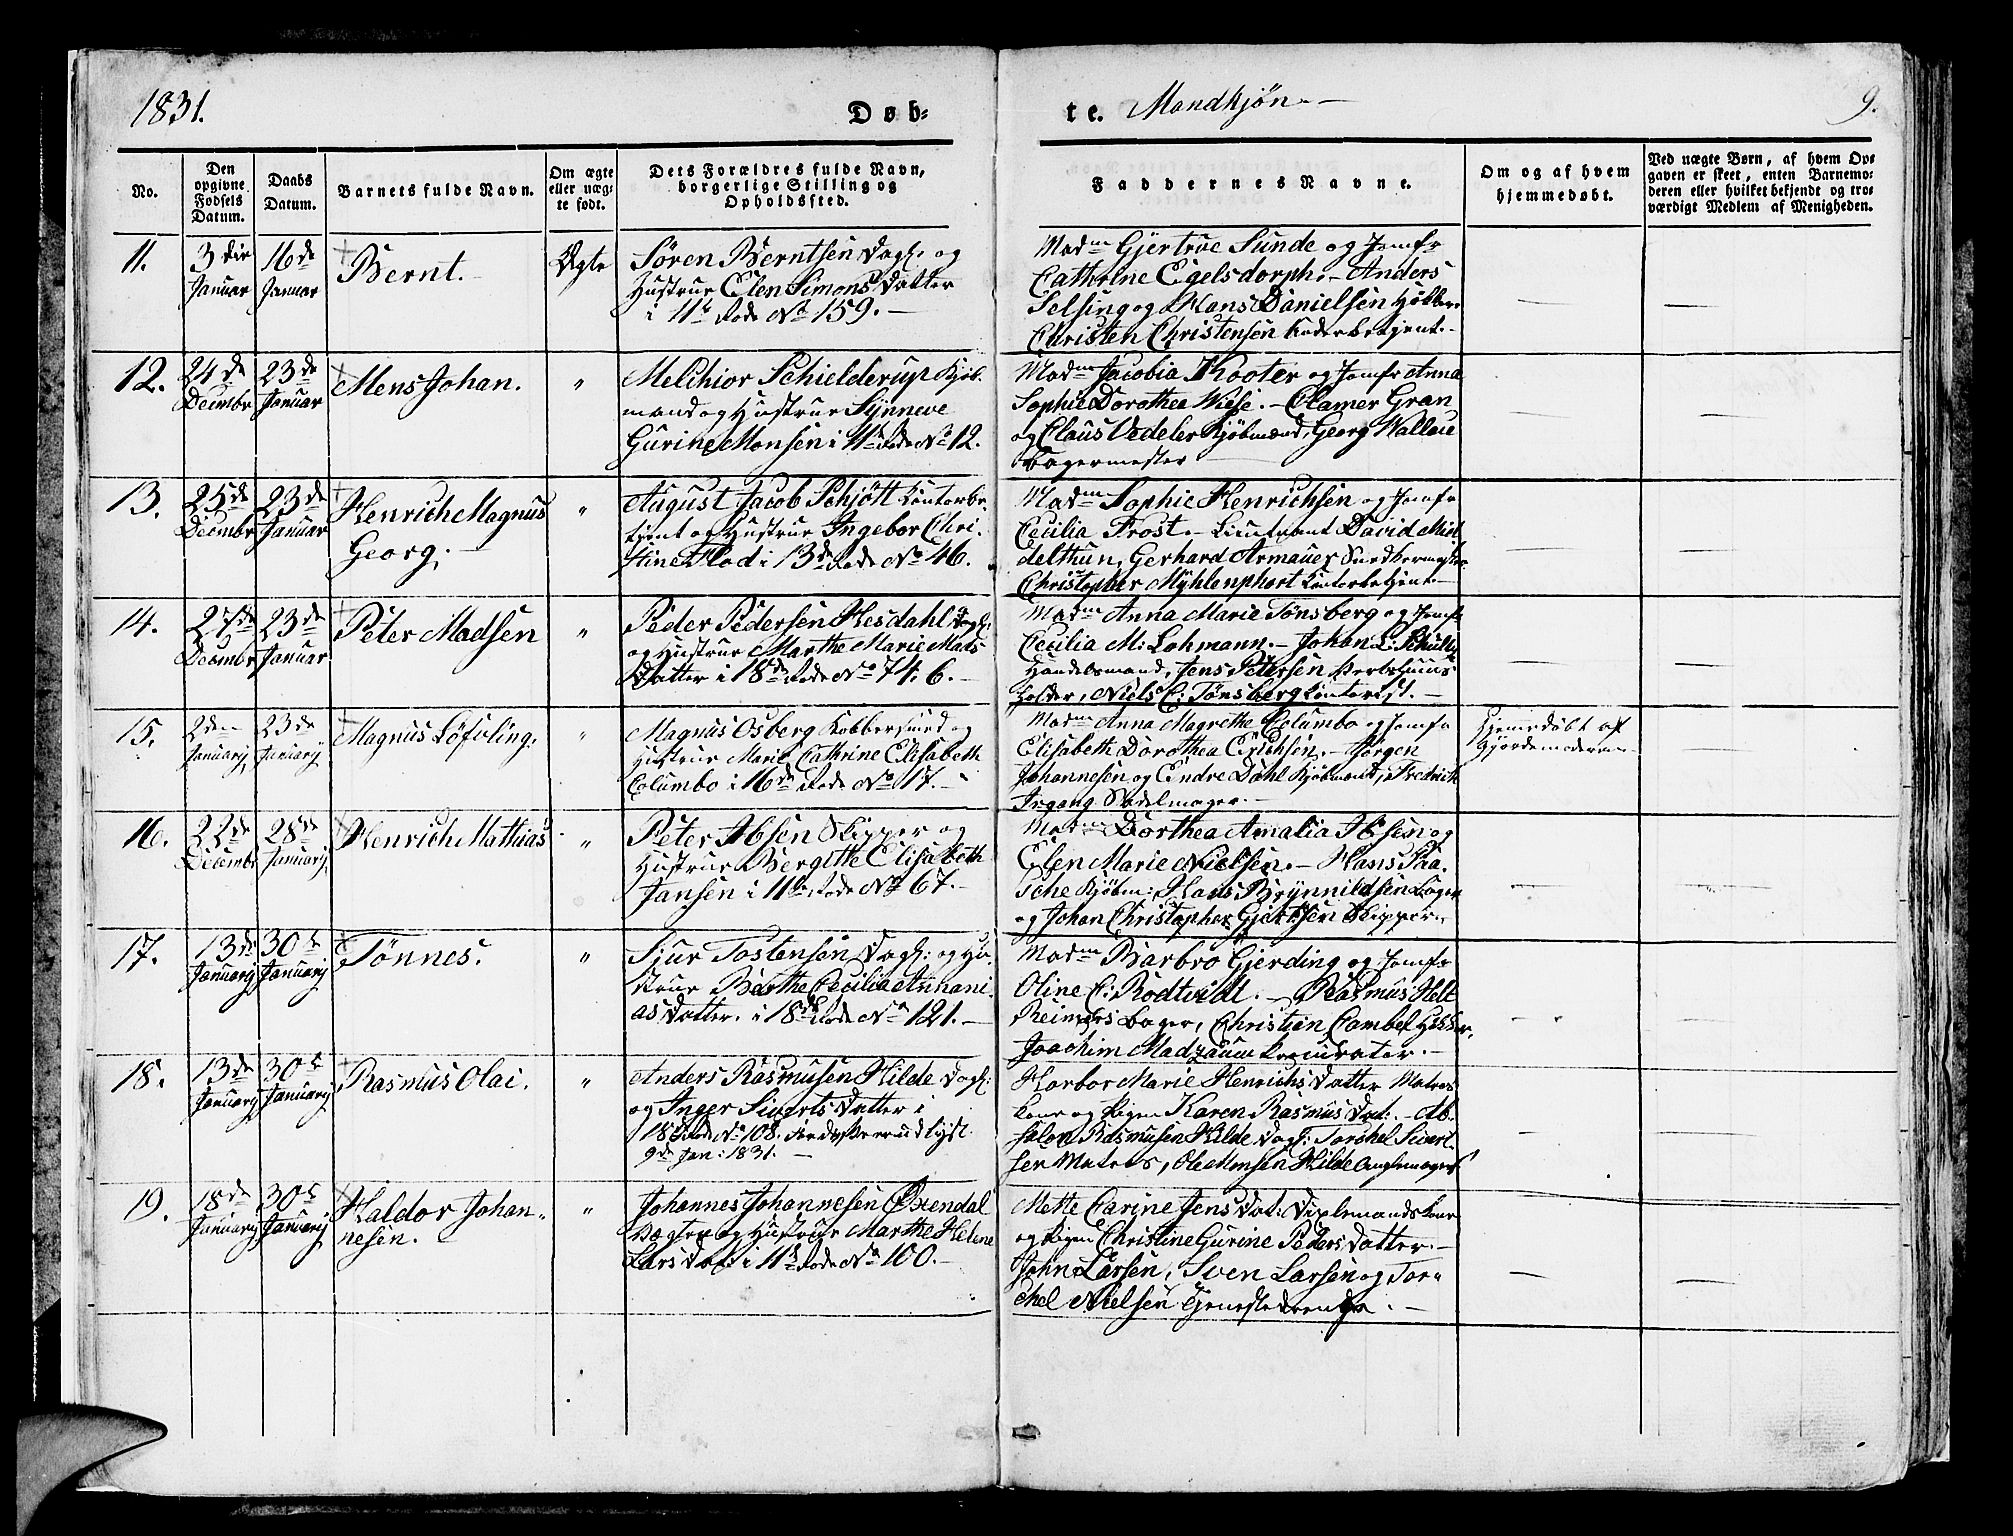 1831.
Døb-
te. Mandkjøn.
9.
No.
Den opgivne Fødsels Datum.
Daabs Datum.
Barnets fulde Navn.
Om ægte eller uægte født.
Dets Forældres fulde Navn, borgerlige Stilling og Opholdssted.
Faddernes Navne.
Om og af hvem hjemmedøbt.
Ved uægte Børn, af hvem Opgaven er skeet, enten Barnemoderen eller hvilket bekjendt og troværdigt Medlem af Menigheden.
11. 3die Januar 16de Januar Bernt. Ægte
Søren Berntsen Dagl: og
Hustrue Elen Simons Datter
i 11te Rode No 159.
Madme Gjertrue Sunde og Jomfr
Cathrine Egelsdorph. Anders
Selsing og Hans Danielsen
Christen Christensen
12. 24de Decembr 23de Januar Mens Johan. "
Melchior Schielderup Kjøb-
mand og Hustrue Synneve
Gurine Monsen i 11te Rode No 12.
Madme Jacobia Kooter og Jomfr Anna
Sophie Dorothea Wiese. Clamer Gran
og Claus Vedeler Kjøbmænd, Georg Wallace
Bagermester
13. 25de Decembr 23de Januar Henrich Magnus Georg. "
August Jacob Schjøtt Contorbe-
tjent og Hustrue Ingebor Chri-
stine Flod i 13de Rode No 46.
Madme Sophie Henrichsen og Jomfr
Cecilia Frost. Lieutnant David Mid-
delthun, Gerhard Armauer Snedkermester
Christopher Mÿhlenphort Contorbetjent.
14. 27de Decembr 23de Januar Peter Madsen "
Peder Pedersen Hesdahl Dagl:
og Hustrue Marthe Marie Mads
Datter i 18de Rode No 74, 6.
Madme Anna Marie Tønsberg og Jomfr
Cecilia M: Lohmann. Johan L: Schultz
Handelsmand, Jens Petersen
holder, Niels C: Tønsberg Contorist.
15. 2den Januarij 23de Januarij Magnus Løfvling. "
Magnus Osberg Kobbersmed og
Hustrue Marie Cathrine Elisabeth
Columbo i 16de Rode No 17.
Madme Anna Magrethe Columbo og Jomfr
Elisabeth Dorothea Erichsen. Jørgen
Johannesen og Endre Dahl Kjøbmænd, Fredrich
Irgang Sadelmager.
Hjemedøbt af
Gjordemoderen
16. 22de Decembr 28de Januarij Henrich Mathias "
Peter Ibsen Skipper og
Hustrue Bergitte Elisabeth
Jansen i 11te Rode No 67.
Madme Dorthea Amalia Ibsen og
Elen Marie Nielsen. Hans Paa-
sche Kjøbm: Hans Brÿnnildsen Bager
og Johan Christopher Gjertsen Skipper.
17. 13de Januarij 30te Januarij Tønnes. "
Sjur Tostensen Dagl: og Hu-
strue Barthe Cecilia Annani-
as Datter. i 18de Rode No 121.
Madme Barbro Gjerding og Jomfr
Oline C: Rodtvidt. Rasmus Helt
Reimers Bager, Christian Cambel
Joachim Procurator.
18. 13de Januarij 30te Januarij Rasmus Olai. "
Anders Rasmusen Hilde Dagl:
og Inger Siverts Datter i
18de Rode No 108.
9de Jan: 1831.
Marie Henrichs Datter Matros
kone og Pigen Karen Rasmus Dat: Ab-
salon Rasmusen Hilde Dagl: Torchel Sivert-
sen Matros, Ole Monsen Hilde
19. 18de Januarij 30te Januarij Haldor Johan-
nesen. "
Johannes Johannesen Øxendal
og Hustrue Marthe Helene
Lars Dat: i 11te Rode No 100.
Mette Carine Jens Dat:
og Pigen Christine Gurine Peders Datter.
John Larsen, Sven Larsen og Tor-
chel Nielsen Tjenestedrenge.